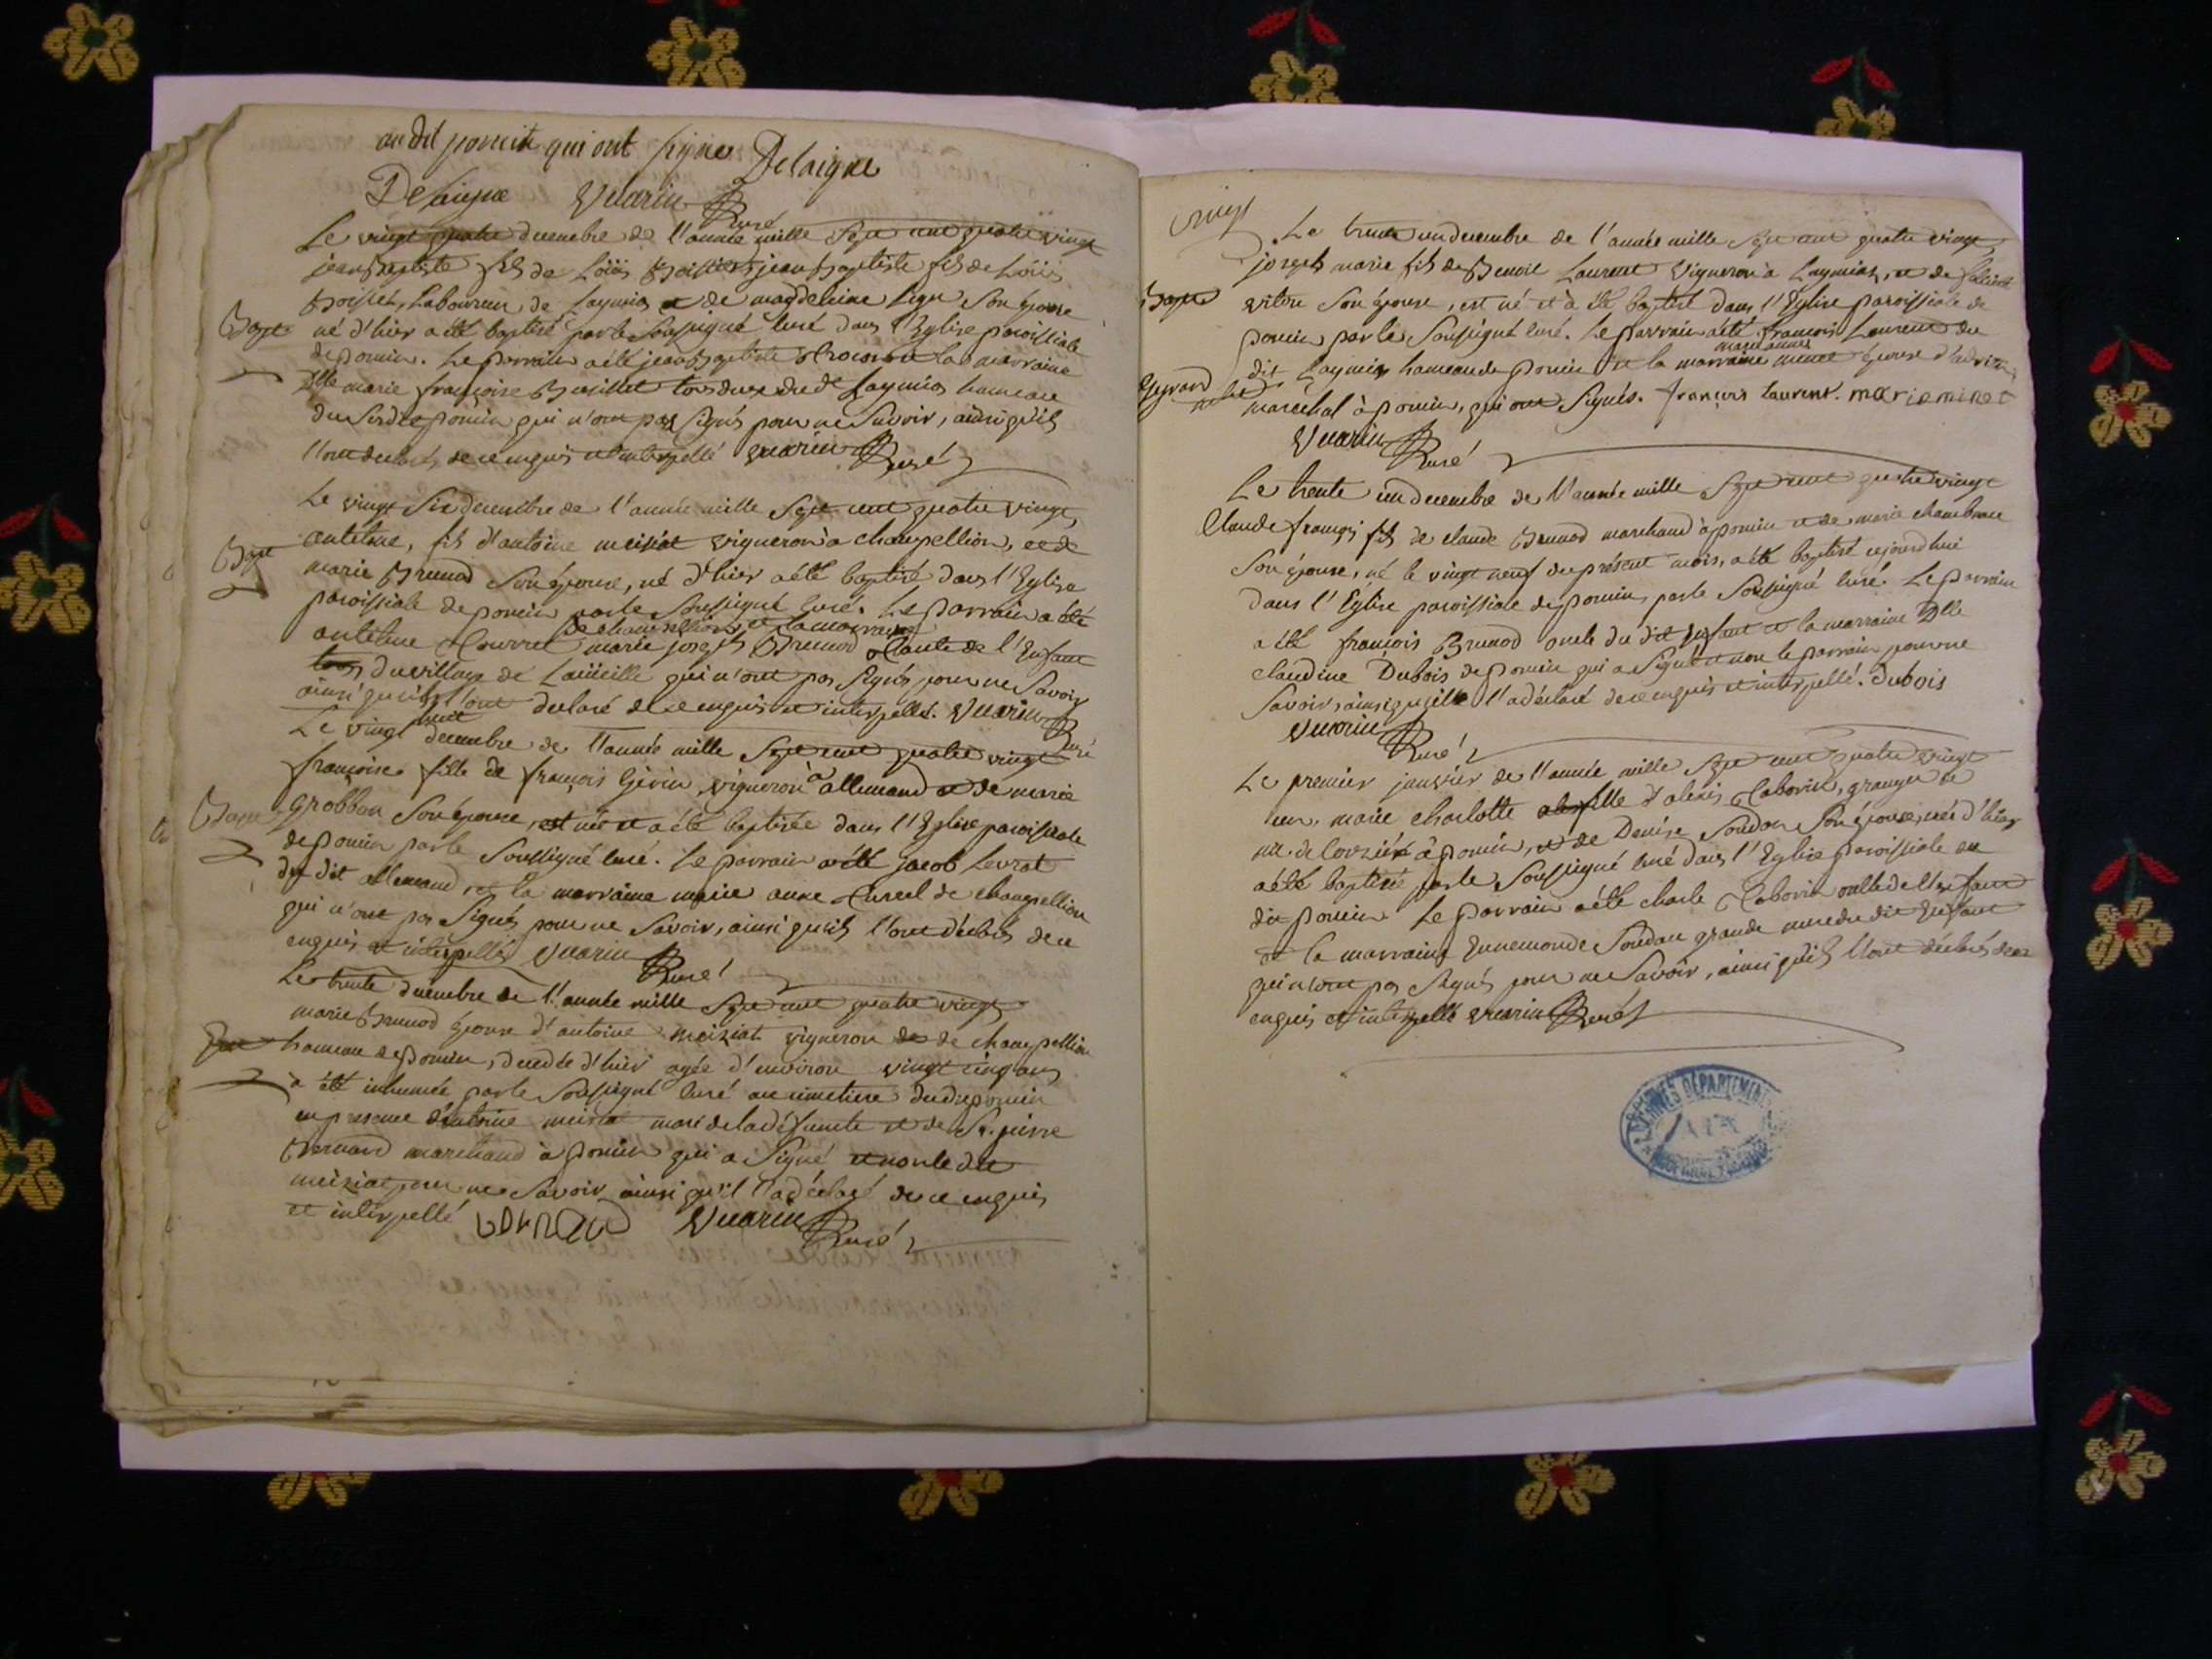 au dit poncin qui ont signé Delaigne
Delaigne Vuarin Curé
Le vingt quatre decembre de l'année mille sept cent quatre vingt
jean Baptiste fils de Loüis jean Baptiste fils de Loüis
laboureur de Leymia et de magdeleine son épouse
Bapt né d'hier a été baptisé par le soussigné curé dans l'Eglise paroissiale
de poncin. Le parrain a été jean Baptiste et la marraine
Dlle marie françoise tous deux du dt Laymia hameau
du susdit poncin qui n'ont pas signés pour ne savoir, ainsi qu'ils
l'ont declarés, de ce enquis et interpellé Vuarin Curé
Le vingt six decembre de l'année mille sept cent quatre vingt
Bapt antelme, fils d'antoine meiziat vigneron a champellion, et de
marie Brunod son épouse, né d'hier a été baptisé dans l'Eglise
paroissiale de poncin par le soussigné curé. Le parrain a été
de champellion et la marraine
antelme marie joseph Brunod tante de l'Enfant
tous du village de qui n'ont pas signés, pour ne savoir
ainsi qu'ils l'ont declaré de ce enquis et interpellés. Vuarin Curé
Le vingt huit decembre de l'année mille sept cent quatre vingt
françoise fille de françois Gévin, vigneron a allemand et de marie
Bapt Grobbon son épouse, est née et a été baptisée dans l'Eglise paroissiale
de poncin par le soussigné curé. Le parrain a été jacob Levrat
du dit allemand, et la marraine marie anne de champellion
qui n'ont pas signés pour ne savoir, ainsi qu'ils l'ont déclarés de ce
enquis et interpellés Vuarin Curé
Le trente decembre de l'année mille sept cent quatre vingt
marie Brunod épouse d'antoine meiziat vigneron de de champellion
hameau de poncin, decedée d'hier agée d'environ vingt cinq ans
a été inhumée par le soussigné curé au cimetiere dudit poncin
en presence d'antoine meiziat mari de la défunte et de Sr. pierre
Bernard marchand à poncin qui a signé et non le dit
meiziat pour ne savoir ainsi qu'il l'a déclaré de ce enquis
et interpellé bernard Vuarin Curé
Le trente un decembre de l'année mille sept cent quatre vingt
joseph marie fils de Benoit Laurent vigneron à Laymiat, et de
Bapt son épouse, est né et a été baptisé dans l'Eglise paroissiale de
poncin par le soussigné curé. Le parrain a été françois Laurent du
marie anne
dit Laymia hameau de poncin et la marraine minet épouse d'
marechal à poncin, qui ont signés. françois laurent. marie minet
Vuarin Curé
Le trente un decembre de l'année mille sept cent quatre vingt
Claude françois fils de claude Brunod marchand à poncin et de marie
son épouse, né le vingt neuf du présent mois, a été baptisé cejourd'hui
dans l'Eglise paroissiale de poncin, par le soussigné curé. Le parrain
a été françois Brunod oncle du dit enfant et la marraine Dlle
claudine Dubois de poncin qui a signé et non le parrain pour ne
savoir, ainsi qu'elle l'a déclaré de ce enquis et interpellé. Dubois
Vuarin Curé
Le premier janvier de l'année mille sept cent quatre vingt
un, marie charlotte fille d'alexis Caborin, granger de
mr. de à poncin, et de Denise Soudan son épouse, née d'hier
a été baptisée par le soussigné curé dans l'Eglise paroissiale du
dit poncin. Le parrain a été charle Caborin oncle de l'enfant
et la marraine Ennemonde Soudan grande mere du dit Enfant
qui n'ont pas signés pour ne savoir, ainsi qu'ils l'ont déclarés de ce
enquis et interpellé Vuarin Curé
ARCHIVES DÉPARTEMENTALES